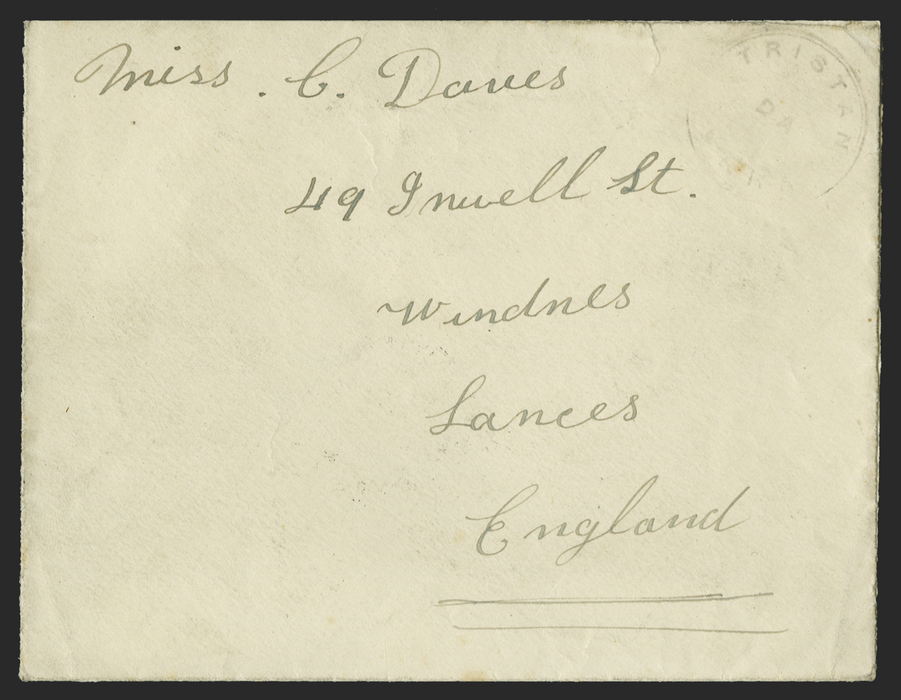 Miss. C. Daves
49 Inwell St.
Windnes
Lances
England
TRISTAN
DA